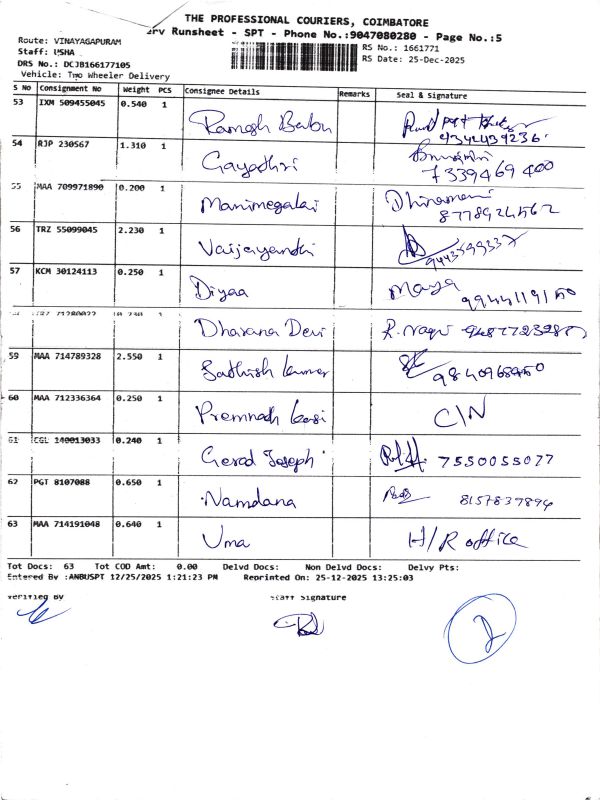 THE PROFESSIONAL COURIERS, COIMBATORE
erv Runsheet - SPT - Phone No.:9047080280 - Page No.:5
Route: VINAYAGAPURAM
Staff: USHA
DRS No.: DCJB166177105
Vehicle: Two Wheeler Delivery
RS No.: 1661771
RS Date: 25-Dec-2025
S No Consignment No Weight PCS Consignee Details Remarks Seal & Signature
53 IXM 509455045 0.540 1 Ramesh Babu
54 RJP 230567 1.310 1 Gayathri 7339469400
55 MAA 709971890 0.200 1 Manimegalai 8778924562
56 TRZ 55099045 2.230 1 Vaijayandhi
57 KCM 30124113 0.250 1 Diyaa Maya
1 Dharana Devi R. Nagu
59 MAA 714789328 2.550 1 Sathish kumar
60 MAA 712336364 0.250 1 Premnath C/N
61 CGL 140013033 0.240 1 Gerod Joseph 7550055077
62 PGT 8107088 0.650 1 Namdana 8157837894
63 MAA 714191048 0.640 1 Uma H/R office
Tot Docs: 63 Tot COD Amt: 0.00 Delvd Docs: Non Delvd Docs: Delvy Pts:
Entered By :ANBUSPT 12/25/2025 1:21:23 PM Reprinted On: 25-12-2025 13:25:03
Verified By Staff Signature